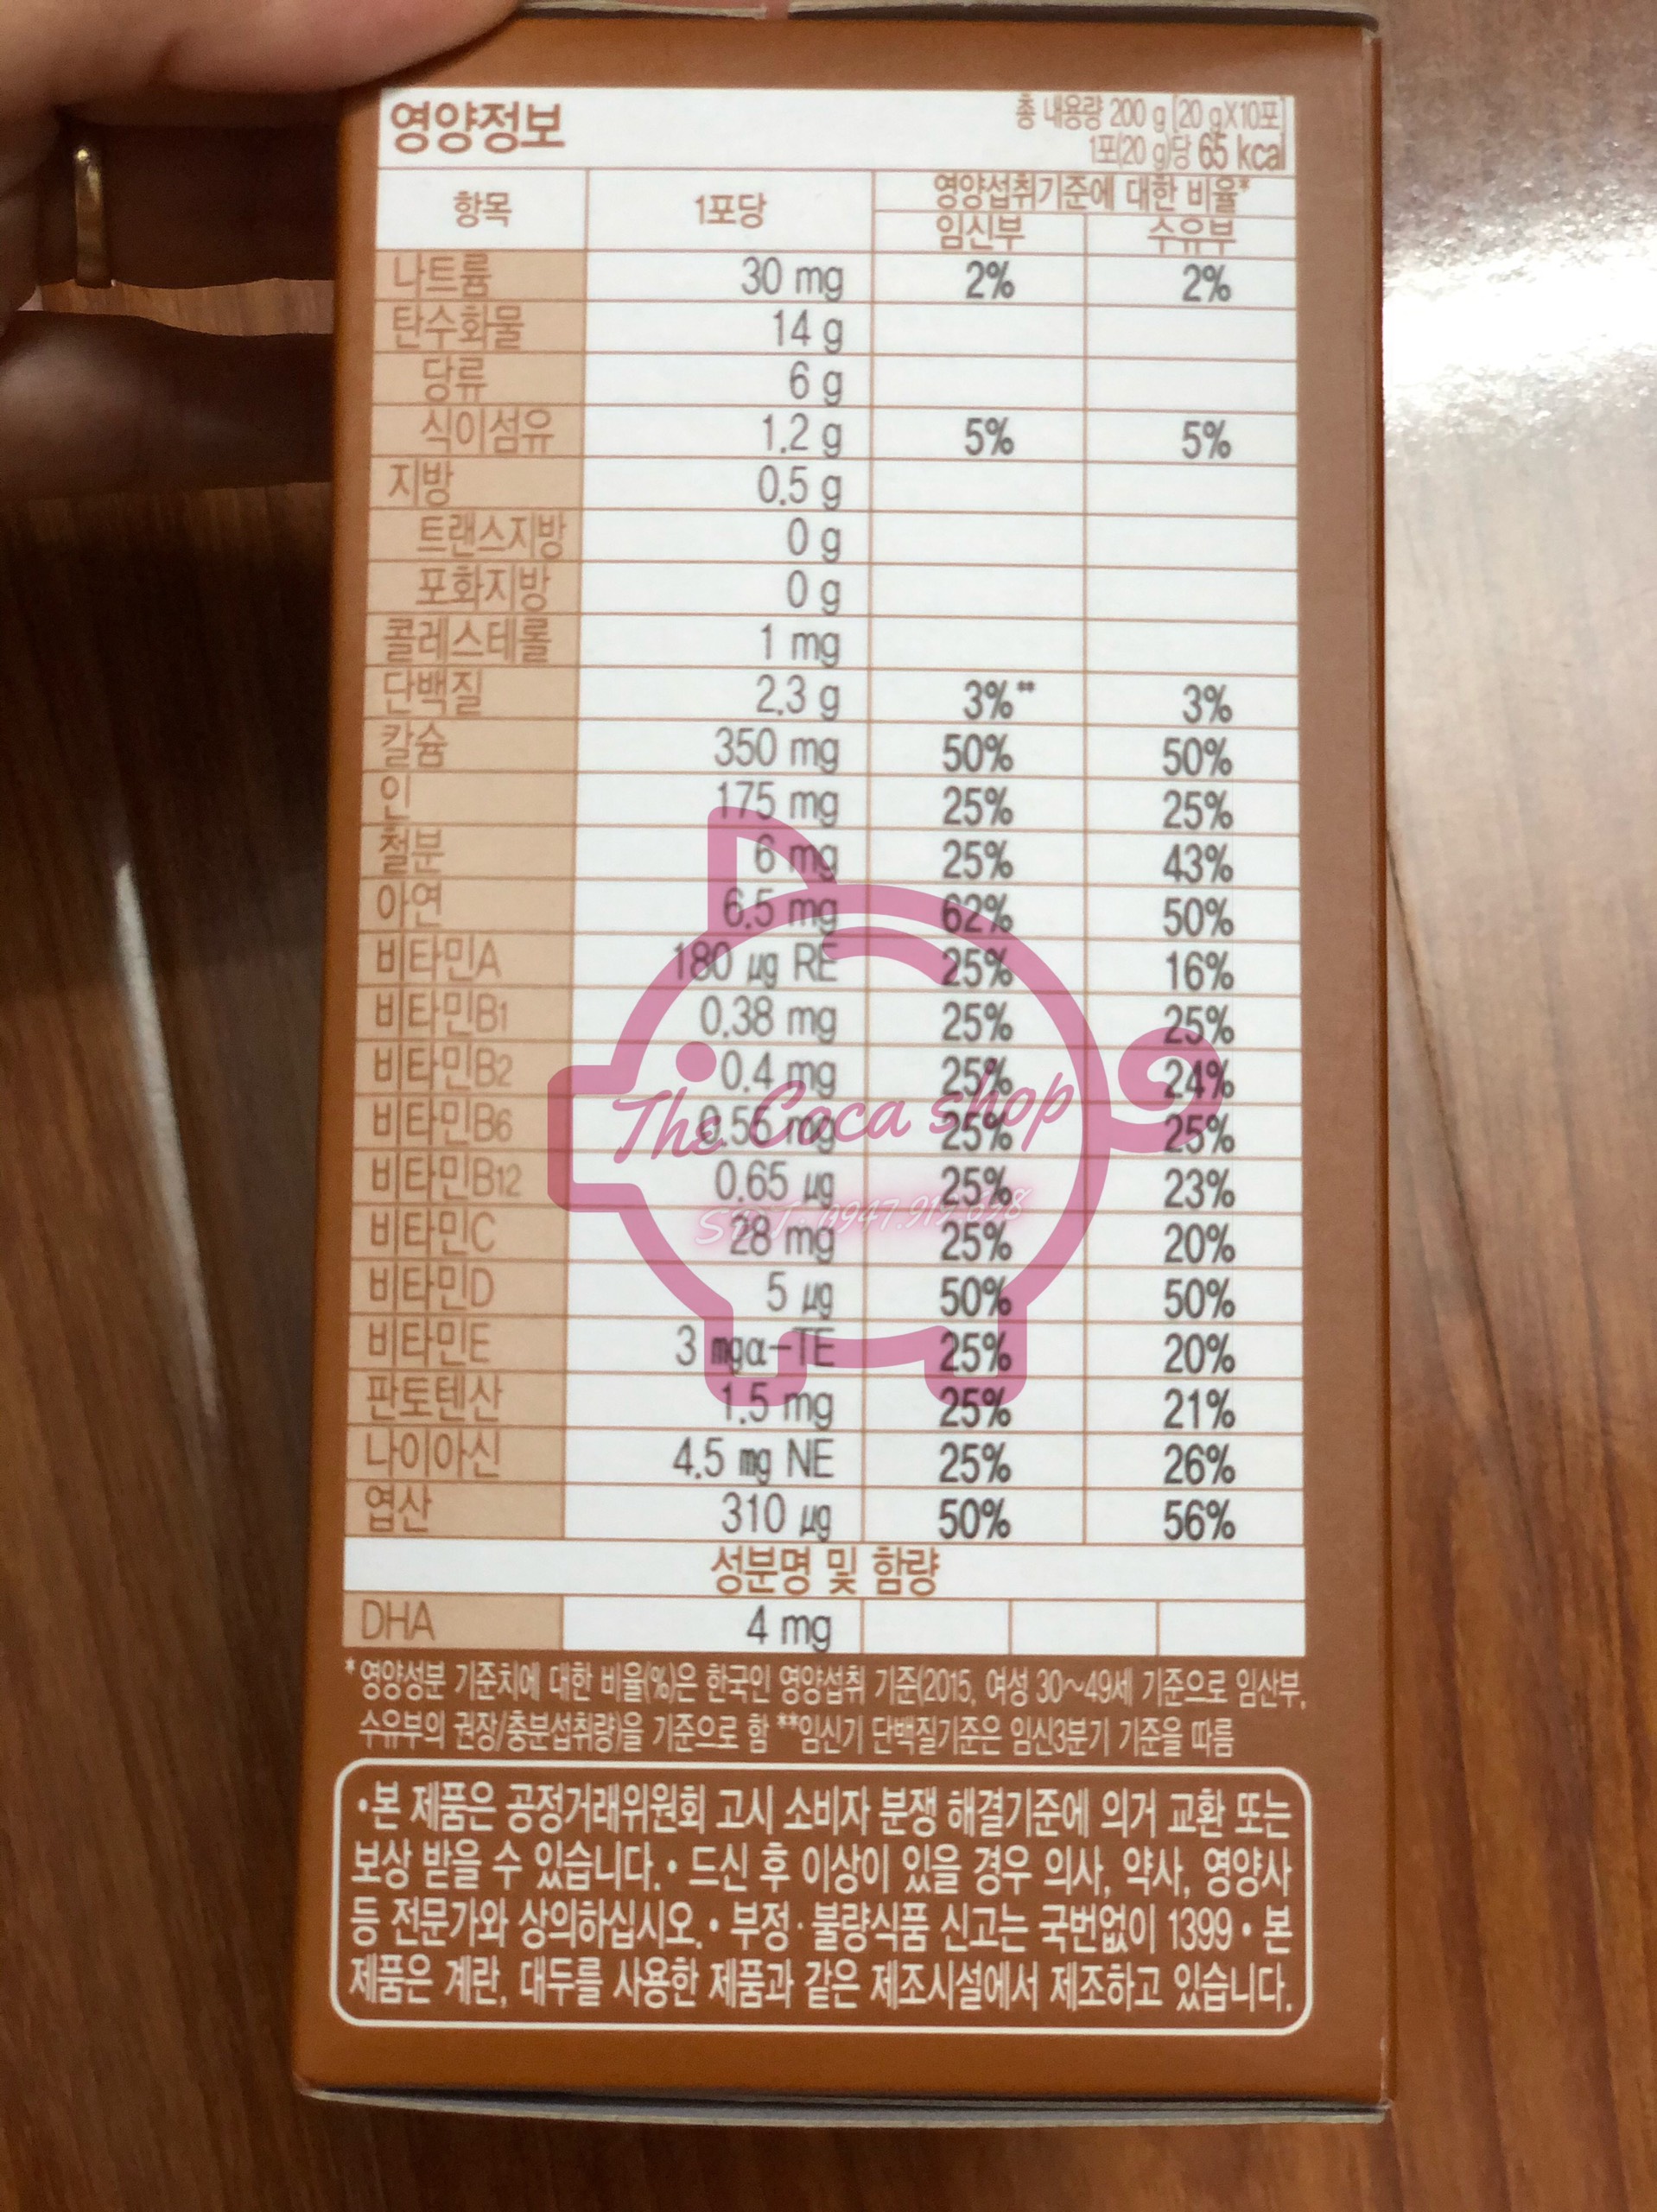 영양정보
총 내용량 200 g [20 gX10포]
1포(20 g)당 65 kcal
항목 1포당 영양섭취기준에 대한 비율*
임신부 수유부
나트륨 30 mg 2% 2%
탄수화물 14 g
당류 6 g
식이섬유 1.2 g 5% 5%
지방 0.5 g
트랜스지방 0 g
포화지방 0 g
콜레스테롤 1 mg
단백질 2.3 g 3%** 3%
칼슘 350 mg 50% 50%
인 175 mg 25% 25%
철분 6 mg 25% 43%
아연 6.5 mg 62% 50%
비타민A 180 μg RE 25% 16%
비타민B1 0.38 mg 25% 25%
비타민B2 0.4 mg 25% 24%
The Coca shop
비타민B6 0.55 mg 25% 25%
비타민B12 0.65 μg 25% 23%
비타민C 28 mg 25% 20%
비타민D 5 μg 50% 50%
비타민E 3 mgα-TE 25% 20%
판토텐산 1.5 mg 25% 21%
나이아신 4.5 mg NE 25% 26%
엽산 310 μg 50% 56%
성분명 및 함량
DHA 4 mg
*영양성분 기준치에 대한 비율(%)은 한국인 영양섭취 기준(2015, 여성 30~49세 기준으로 임산부,
수유부의 권장/충분섭취량)을 기준으로 함 **임신기 단백질기준은 임신3분기 기준을 따름
•본 제품은 공정거래위원회 고시 소비자 분쟁 해결기준에 의거 교환 또는
보상 받을 수 있습니다. • 드신 후 이상이 있을 경우 의사, 약사, 영양사
등 전문가와 상의하십시오. • 부정·불량식품 신고는 국번없이 1399 • 본
제품은 계란, 대두를 사용한 제품과 같은 제조시설에서 제조하고 있습니다.